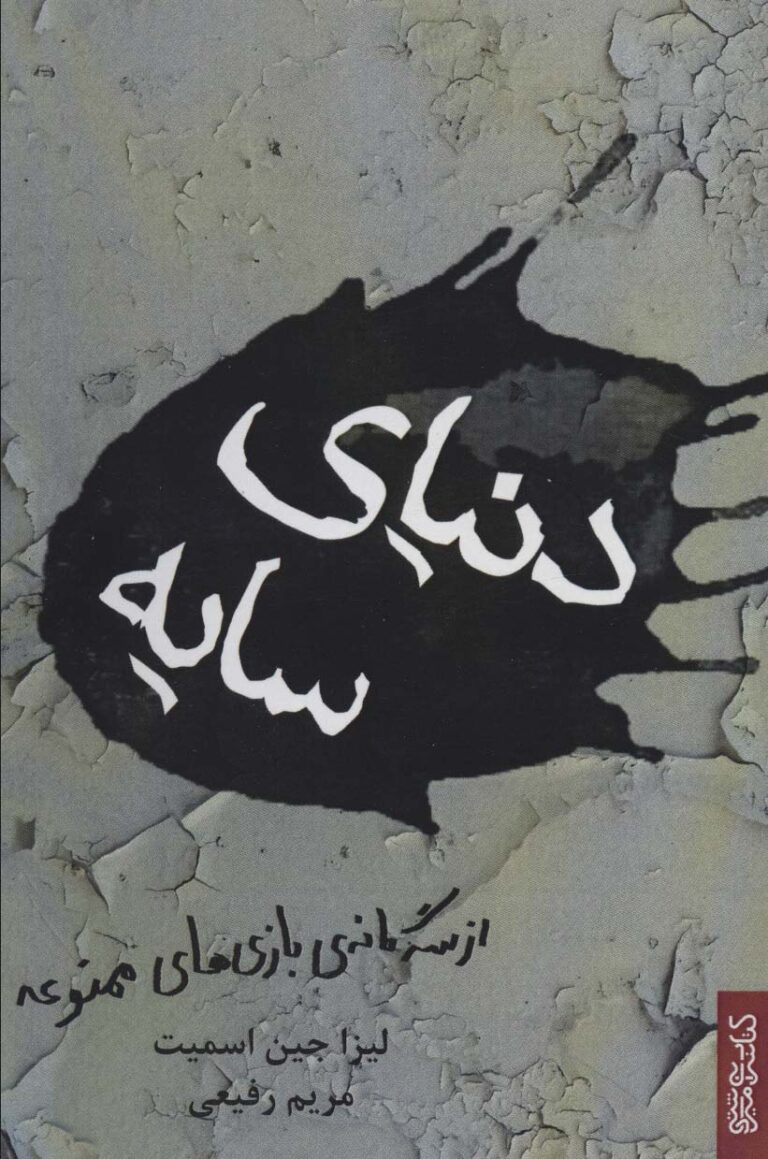 دنیای
سایه
از سه‌گانه‌ی بازی‌های ممنوعه
لیزا جین اسمیت
مریم رفیعی
کتابسرای تندیس